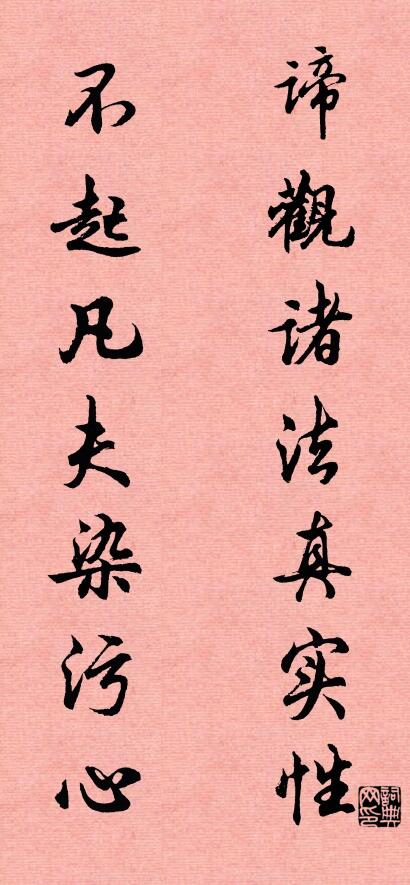 谛觀诸法真实性
不起凡夫染污心
詞典网印